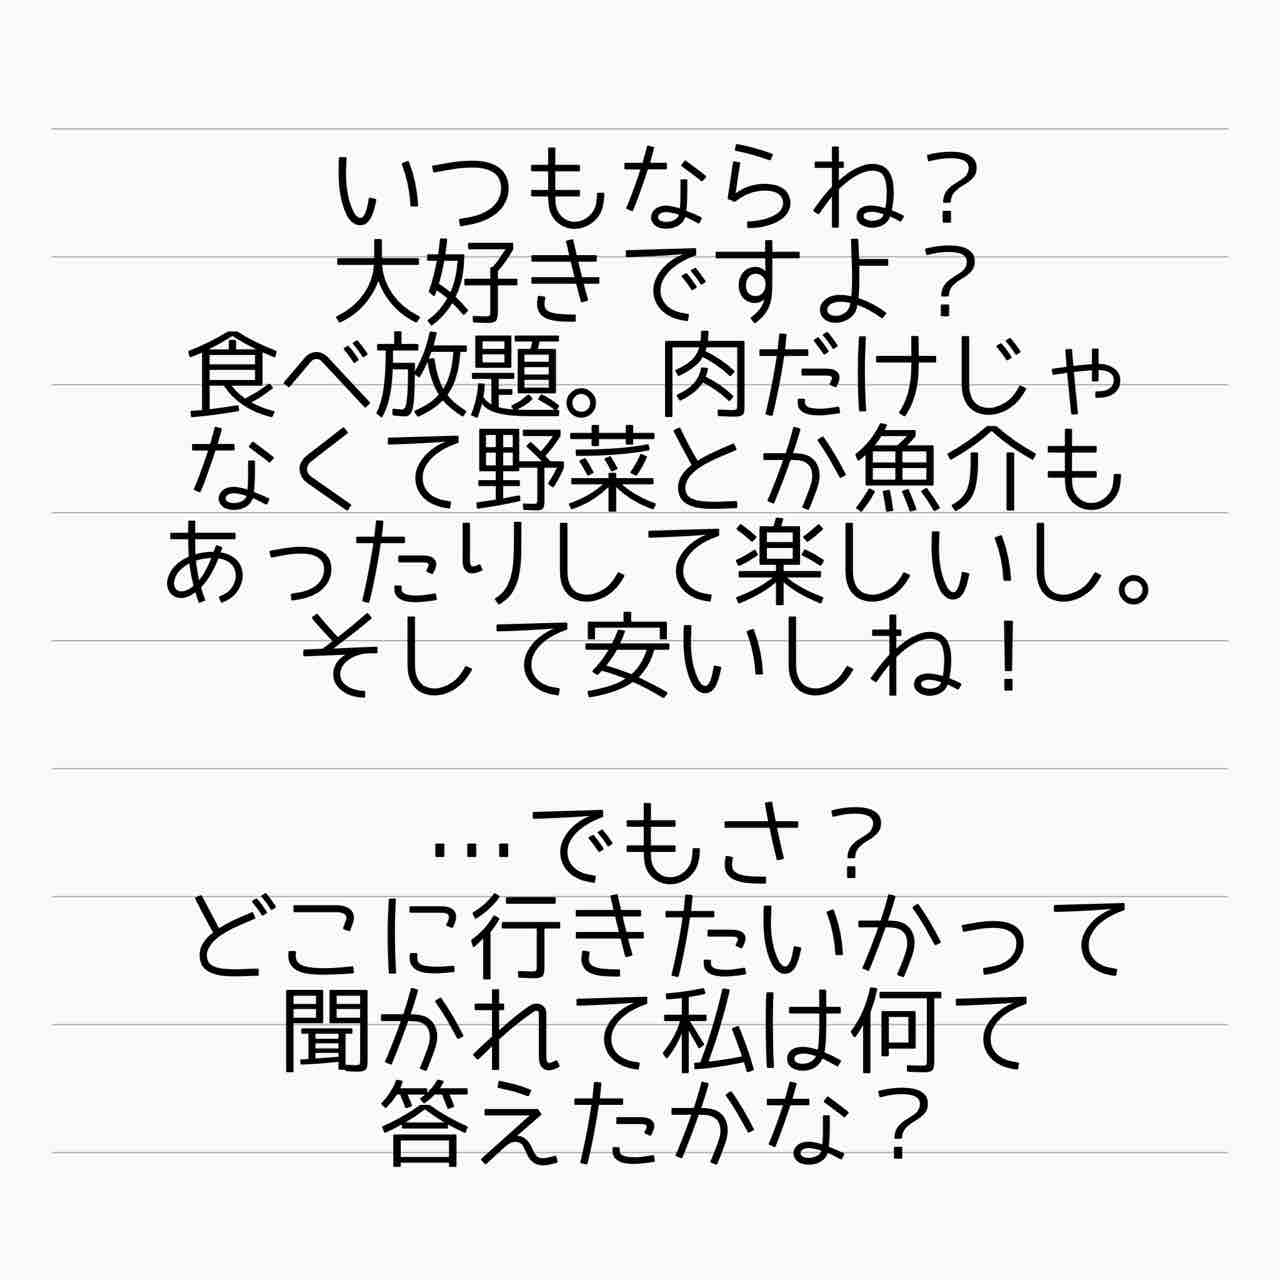 いつもならね？
大好きですよ？
食べ放題。肉だけじゃ
なくて野菜とか魚介も
あったりして楽しいし。
そして安いしね！
…でもさ？
どこに行きたいかって
聞かれて私は何て
答えたかな？